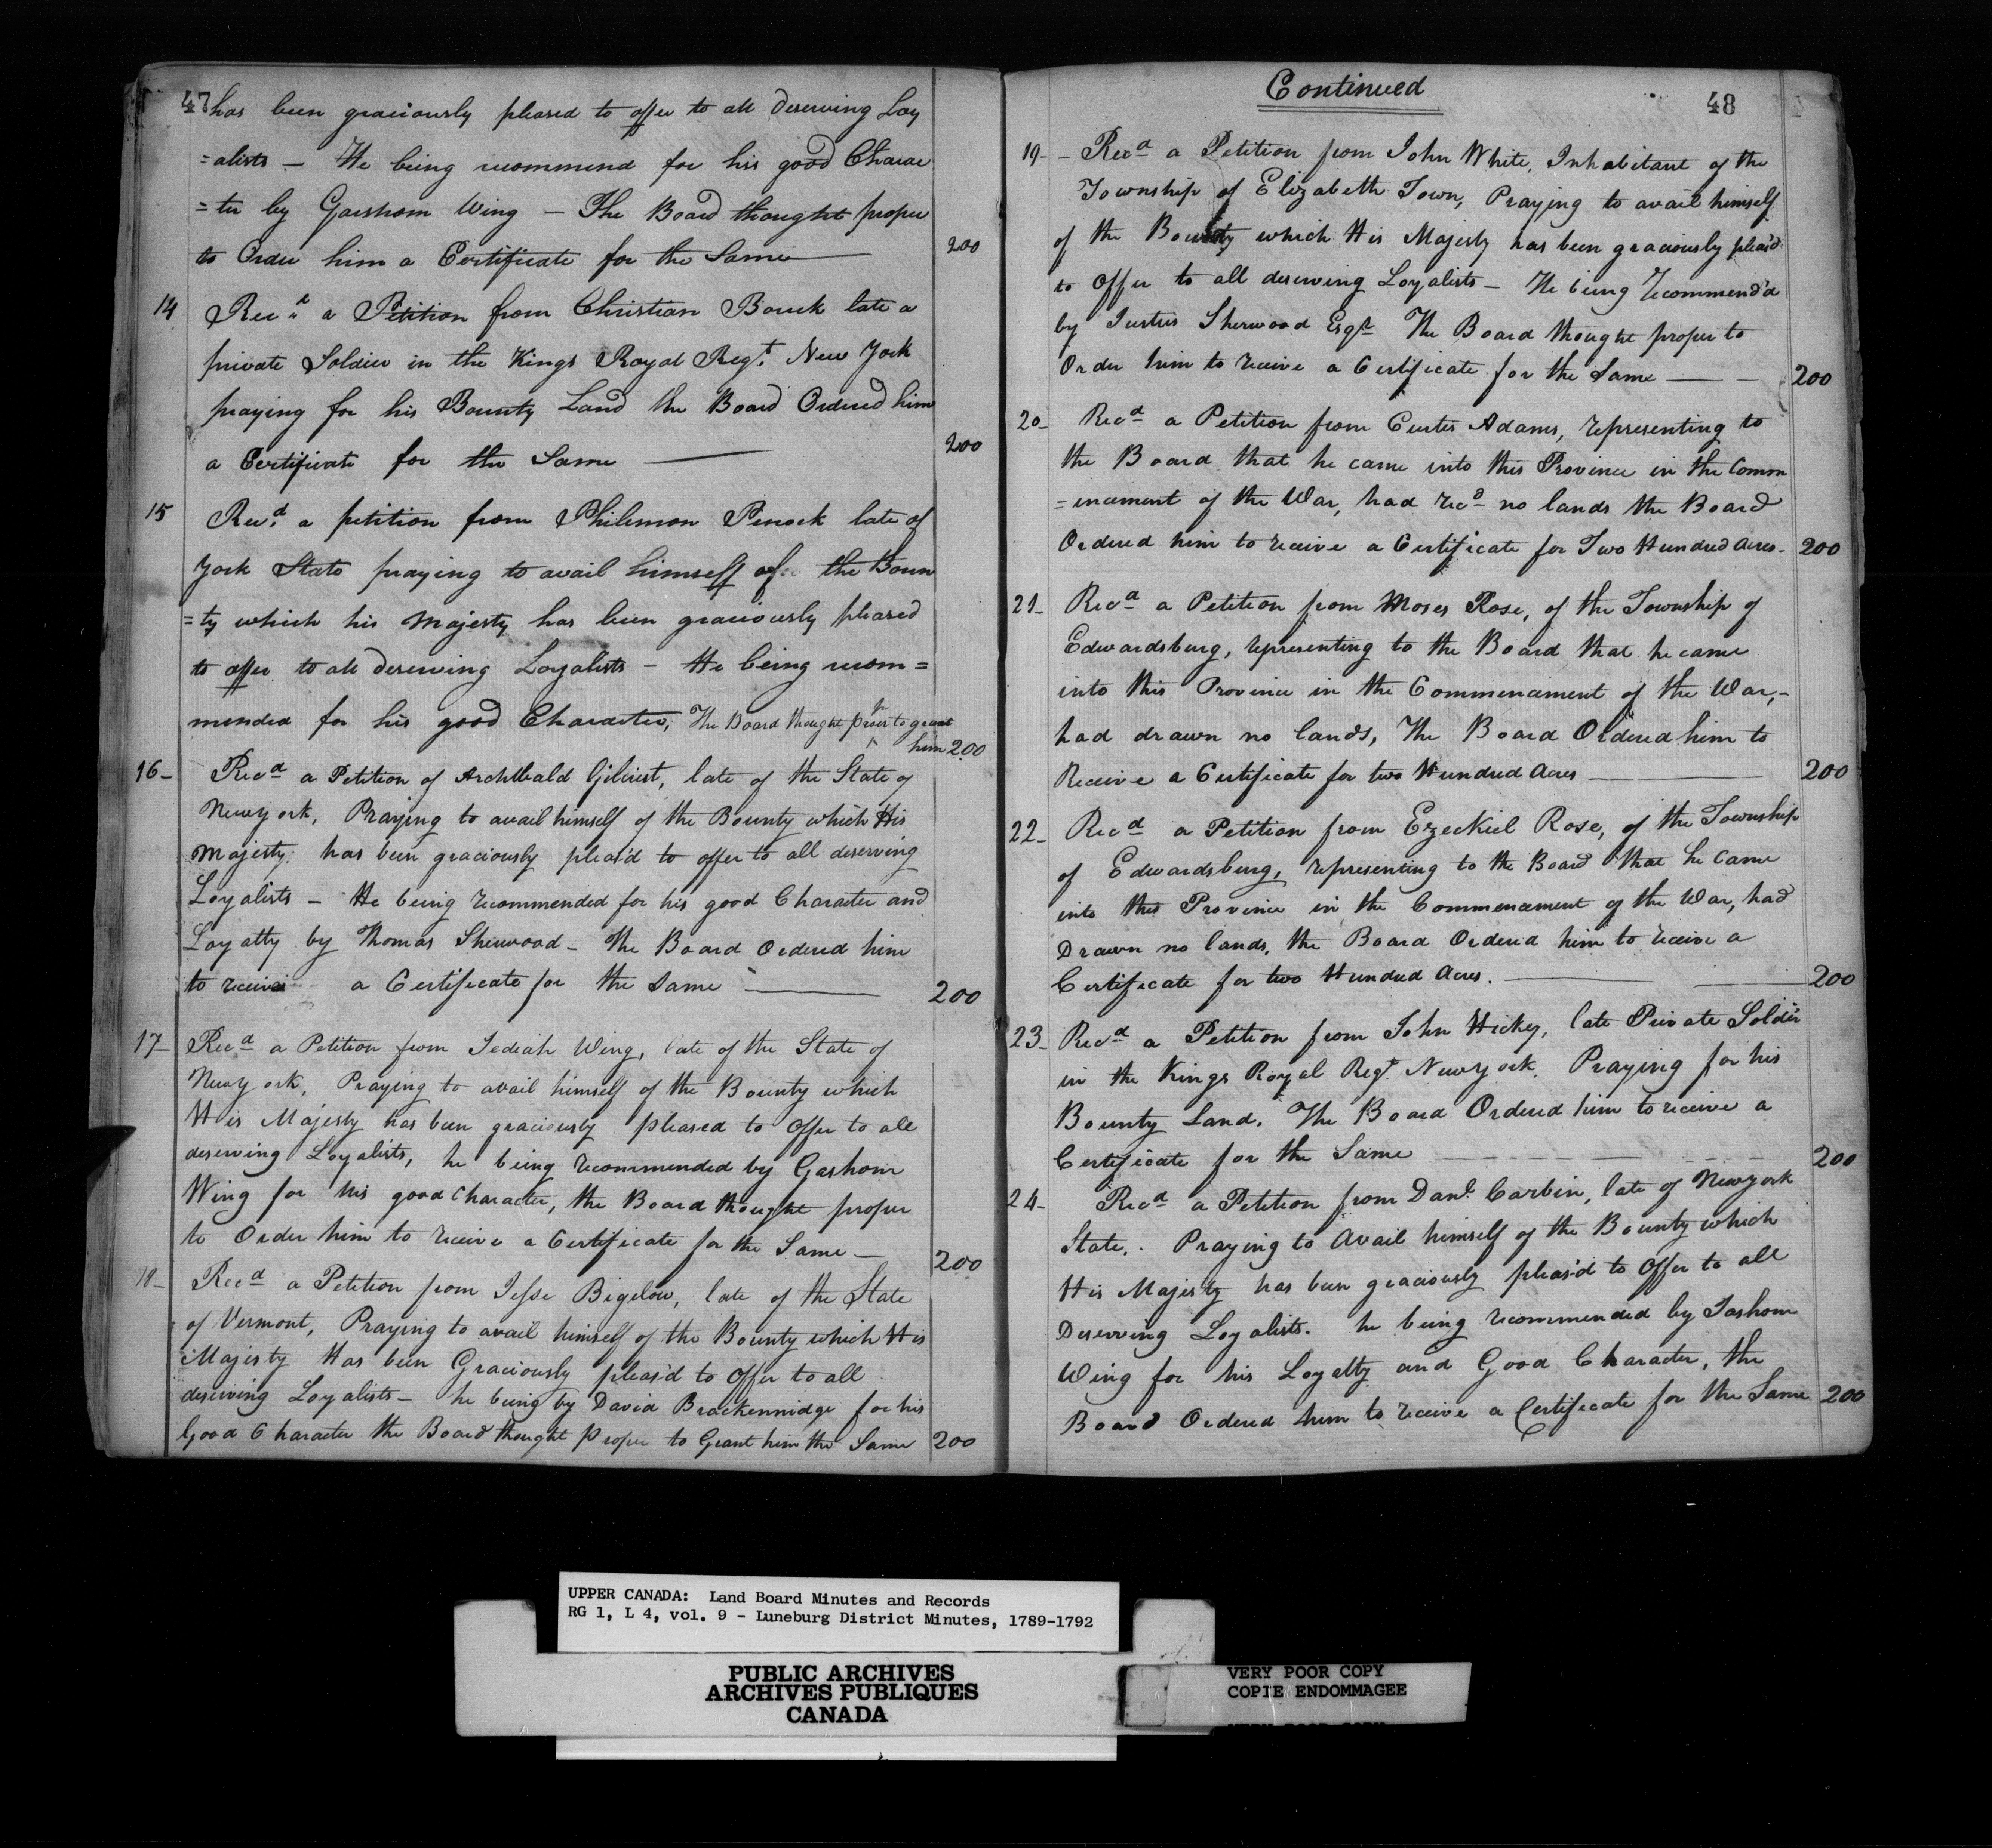 47 has been graciously pleased to offer to all deserving Loy
=alists — He being recommend for his good Charac
=ter by Garshom Wing — The Board thought proper
to Order him a Certificate for the Same — 200
14 Recd a Petition from Christian Bouck late a
private Soldier in the Kings Royal Regt. New York
praying for his Bounty Land the Board Ordered him
a Certificate for the Same — 200
15 Recd. a petition from Philemon Penock late of
York State praying to avail himself of the Boun
=ty which his Majesty has been graciously pleased
to offer to all deserving Loyalists — He being recom=
mended for his good Character, The Board thought proper to grant
him 200
16- Recd a Petition of Archtbald Gilcrist, late of the State of
Newyork, Praying to avail himself of the Bounty which His
Majesty has been graciously pleas'd to offer to all deserving
Loyalists — He being recommended for his good Character and
Loyatty by Thomas Sherwood — The Board Ordered him
to receive a Certificate for the Same — 200
17- Recd a Petition from Jediah Wing, late of the State of
Newyork, Praying to avail himself of the Bounty which
His Majesty has been graciously pleased to Offer to all
deserving Loyalists, he being recommended by Gashom
Wing for his good Character, the Board thought proper
to Order him to receive a Certificate for the Same — 200
18- Recd a Petition from Jesse Bigelow, late of the State
of Vermont, Praying to avail himself of the Bounty which His
Majesty Has been Graciously pleas'd to Offer to all
deserving Loyalists — he being by David Brackennidge for his
Good Character the Board thought proper to Grant him the Same 200
Continued
48
19- - Recd a Petition from John White, Inhabitant of the
Township of Elizabeth Town, Praying to avail himself
of the Bounty which His Majesty has been graciously pleas'd
to Offer to all deserving Loyalists — He being recommend'd
by Justus Sherwood Esqr. The Board thought proper to
Order him to receive a Certificate for the Same — 200
20- Recd a Petition from Curtis Adams, representing to
the Board that he came into this Province in the Comm
=encement of the War, had recd no lands the Board
Ordered him to receive a Certificate for Two Hundred Acres - 200
21- Recd a Petition from Moses Rose, of the Township of
Edwardsburg, representing to the Board that he came
into this Province in the Commencement of the War,-
had drawn no lands, The Board Ordered him to
Receive a Certificate for two Hundred Acres — 200
22- Recd a Petition from Ezeckiel Rose, of the Township
of Edwardsburg, representing to the Board that he came
into this Province in the Commencement of the War, had
Drawn no lands, the Board Ordered him to receive a
Certificate for two Hundred Acres. — 200
23- Recd a Petition from John Hicky, late Private Soldier
in the Kings Royal Regt. Newyork, Praying for his
Bounty Land. The Board Ordered him to receive a
Certificate for the Same — 200
24- Recd a Petition from Danl. Carbin, late of Newyork
State. Praying to Avail himself of the Bounty which
His Majesty has been graciously pleas'd to Offer to all
Deserving Loyalists. he being recommended by Jashom
Wing for his Loyalty and Good Character, the
Board Ordered him to receive a Certificate for the Same 200
UPPER CANADA: Land Board Minutes and Records
RG 1, L 4, vol. 9 - Luneburg District Minutes, 1789-1792
PUBLIC ARCHIVES
ARCHIVES PUBLIQUES
CANADA
VERY POOR COPY
COPIE ENDOMMAGEE
VERY POOR COPY